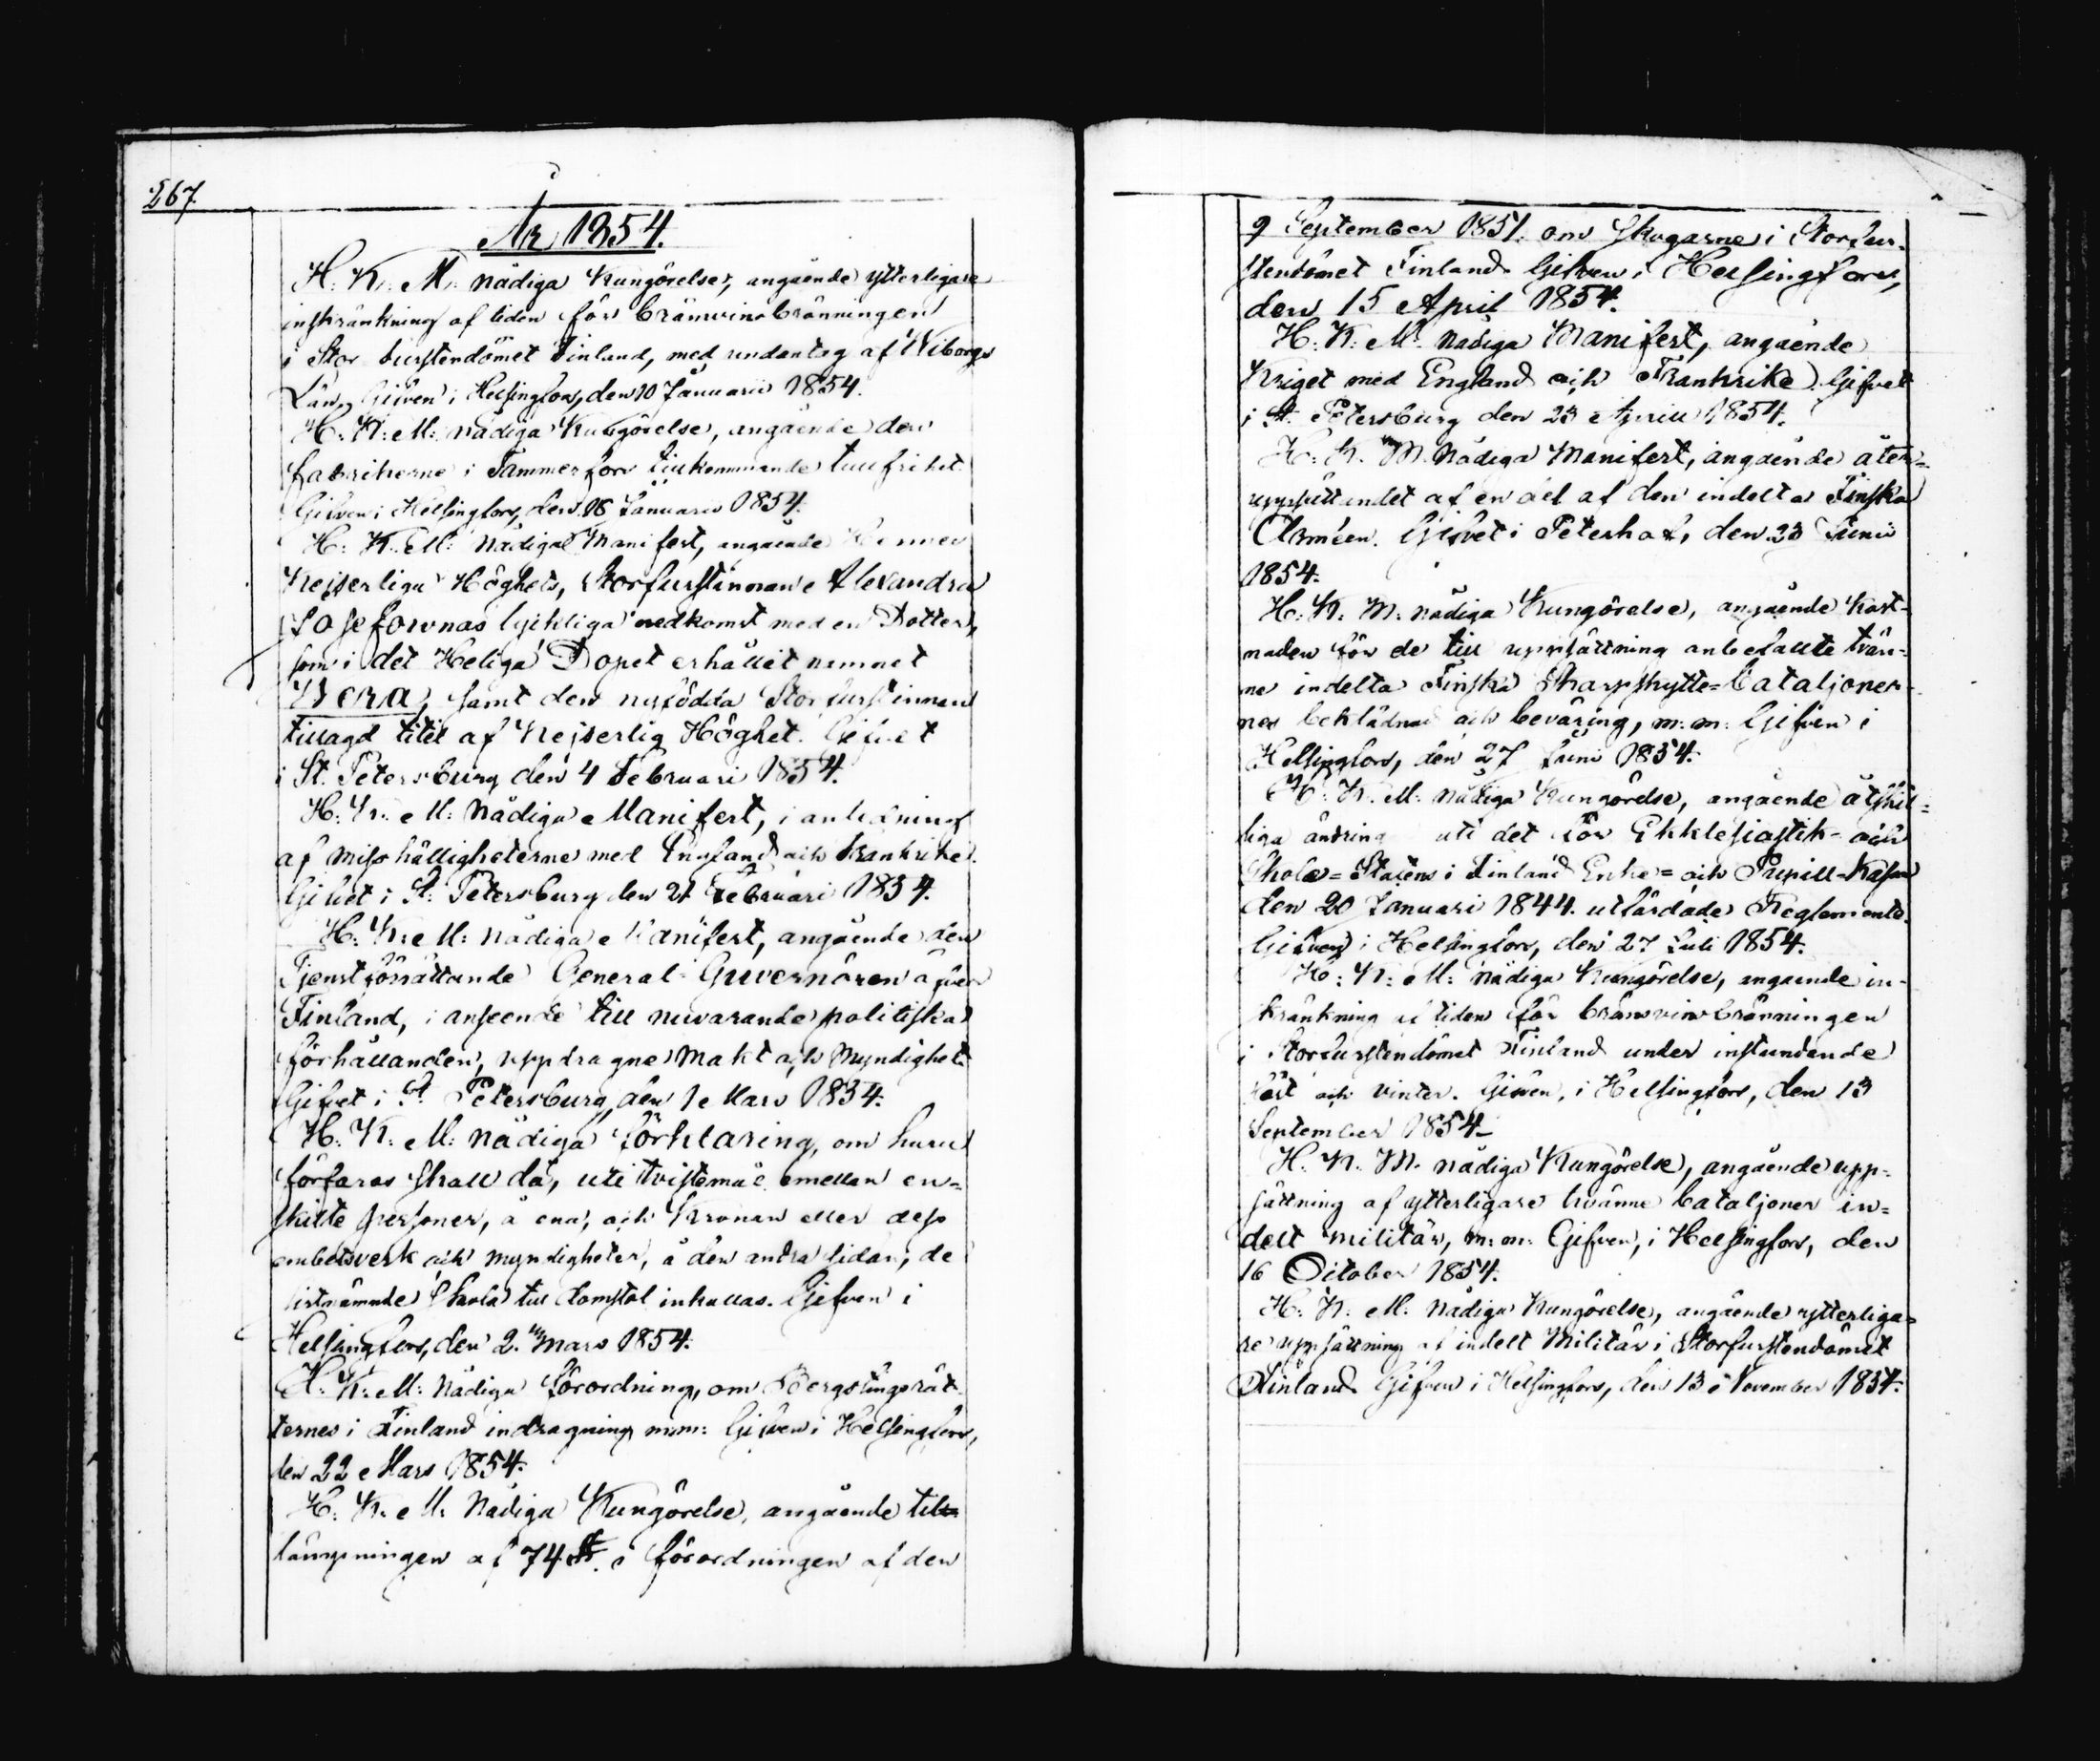 267.
År 1854.
H: K: M: Nådiga Kungörelse, angående ytterligare
inskränkning af tiden för bränvinsbränningen
i Stor furstendömet Finland, med undantag af Wiborgs
Län. Gifven i Helsingfors, den 10 Januarii 1854.
H: K: M: nådiga Kungörelse, angående den
fabrikerne i Tammerfors tillkommande tullfrihet.
Gifven i Helsingfors, den 18 Januarii 1854.
H: K: M: Nådiga Manifest, angående Hennes
Kejserliga Höghets, Storfurstinnans Alexandra
Josefownas lyckliga nedkomst med en Dotter,
som i det Heliga Dopet erhållit namnet
Wera, samt den nyfödda Storfurstinnan
tillagd titel af Kejserlig Höghet. Gifvet
i St. Petersburg den 4 Februari 1854.
H: K: M: Nådiga Manifest, i anledning
af misshälligheterne med England och Frankrike.
Gifvet i St: Petersburg den 21 Februari 1854.
H: K: M: Nådiga Manifest, angående den
Tjenstförrättande General Guvernören öfver
Finland, i anseende till nuvarande politiska
förhållanden, uppdragne Makt och Myndighet.
Gifvet i St. Petersburg, den 1 Mars 1854.
H: K: M: nådiga förklaring, om huru
förfaras skall då, uti tvistemål emellan en=
skilte personer, å ena, och Kronan eller dess
embetsverk och myndigheter, å den andra sidan, de
sistnämnde skola till domstol inkallas. Gifven i
Helsingfors, den 2. Mars 1854.
H: K: M: Nådiga förordning, om Bergstingsrät-
ternes i Finland indragning m:m: Gifven i Helsingfors,
den 22 Mars 1854.
H: K: M: Nådiga Kungörelse, angående till-
lämpningen af 74 §. i förordningen af den
9 September 1851. om Skogarne i Storfur-
stendömet Finland. Gifven, i Helsingfors,
den 15 April 1854.
H: K: M: Nådiga Manifest, angående
Kriget med England och Frankrike. Gifvet
i St. Petersburg den 23 April 1854.
H: K: M. Nådiga Manifest, angående åter=
uppsättandet af en del af den indelta Finska
Armeen. Gifvet i Peterhof, den 23 Junii
1854.
H: K: M: nådiga Kungörelse, angående kost-
naden för de till uppsättning anbefallte tvän-
ne indelta Finska Skarpskytte=bataljoner-
nes beklädnad och beväring, m: m: Gifven i
Helsingfors, den 27 Juni 1854.
H: K: M: nådiga Kungörelse, angående åtskil=
liga ändring uti det för Ekklesiastik- och
Skole=Statens i Finland Enke= och Pupill-Kassa
den 20 Januari 1844. utfärdade Reglemente.
Gifven i Helsingfors, den 27 Juli 1854.
H: K: M: Nådiga Kungörelse, angående in-
kränkning af tiden för bränvinsbränningen
i Storfurstendömet Finland under instundande
höst och vinter. Gifven, i Helsingfors, den 13
September 1854.
H: K: M. nådiga Kungörelse, angående upp=
sättning af ytterligare tvänne bataljoner in=
delt militär, m: m: Gifven, i Helsingfors, den
16 October 1854.
H: K: M: Nådiga Kungörelse, angående ytterliga=
re uppsättning af indelt Militär i Storfurstendömet
Finland. Gifven i Helsingfors, den 13 November 1854.